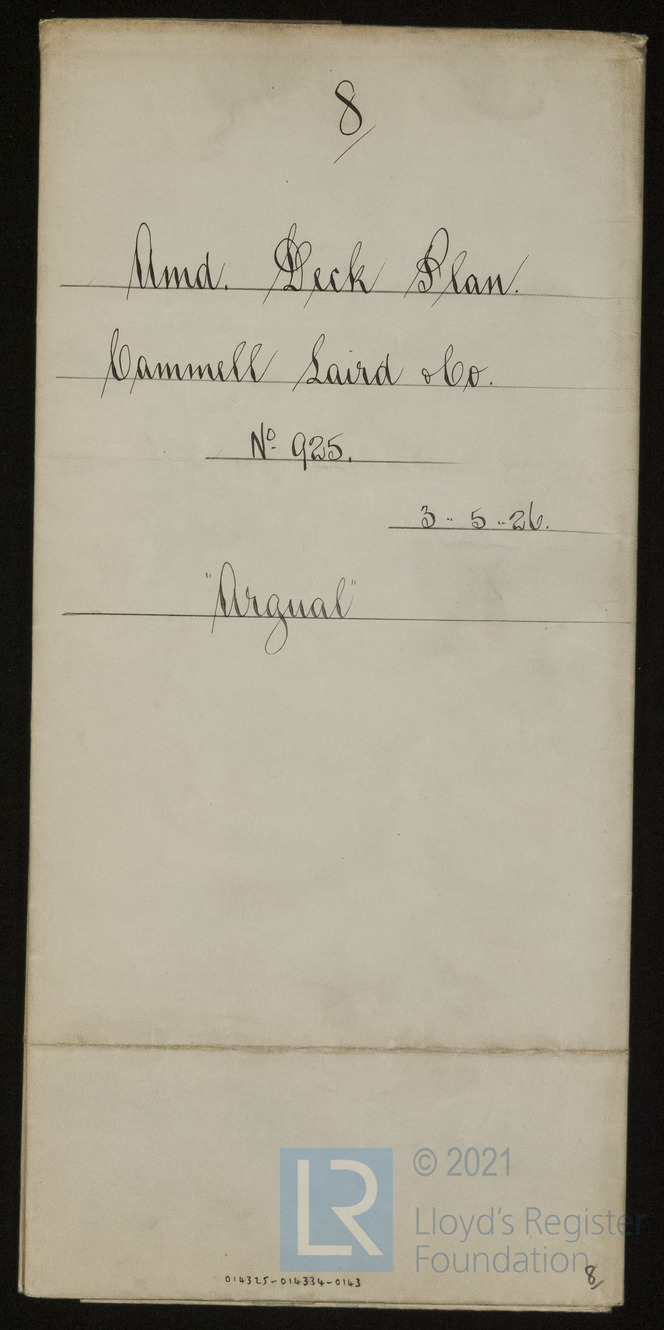 8
Amd. Deck Plan.
Cammell Laird & Co.
No. 925.
3..5..26.
"Argual"
LR
© 2021
Lloyd's Register
Foundation
8
014325-014334-0143